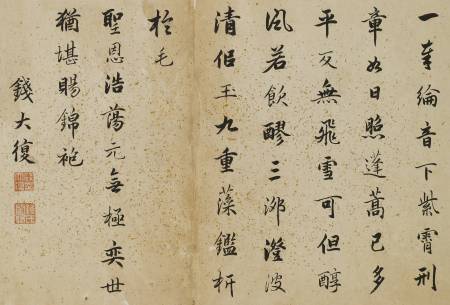 一奉綸音下紫霄刑
章如日照蓬蒿已多
平反無飛雪可但醇
風若飲醪三泖澄波
清侶玉九重藻鑑析
於毛
聖恩浩蕩元無極奕世
猶堪賜錦袍
錢大復